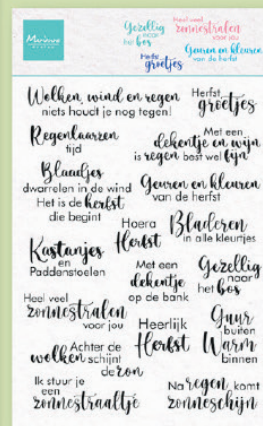 Marianne
DESIGN
Gezellig
naar
het bos
Heel veel
zonnestralen
voor jou
Herfst
groetjes
Geuren en kleuren
van de herfst
Wolken, wind en regen
niets houdt je nog tegen!
Herfst
groetjes
Regenlaarzen
tijd
Met een
dekentje en wijn
is regen best wel fijn
Blaadjes
dwarrelen in de wind
Het is de herfst
die begint
Geuren en kleuren
van de herfst
Hoera
Herfst
Bladeren
in alle kleurtjes
Kastanjes
en
Paddenstoelen
Met een
dekentje
op de bank
Gezellig
naar
het bos
Heel veel
zonnestralen
voor jou
Heerlijk
Herfst
Guur
buiten
Warm
binnen
Achter de
wolken schijnt
de zon
Ik stuur je
een
zonnestraaltje
Na regen komt
zonneschijn